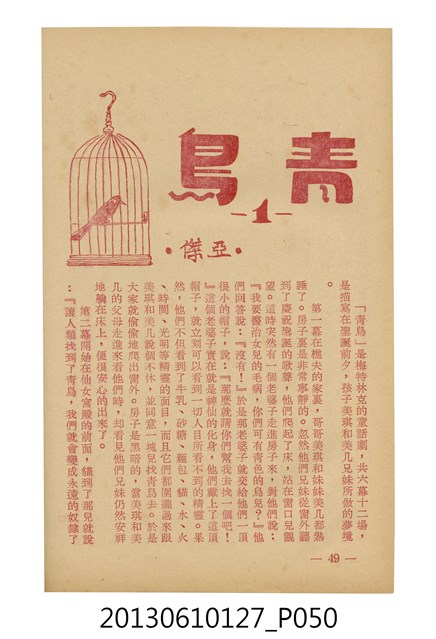 青鳥
—1—
•亞傑•
「青鳥」是梅特林克的童話劇，共六幕十二場，
是描寫在聖誕前夕，孩子美琪和美几兄妹所做的夢境
。
第一幕在樵夫的家裏，哥哥美琪和妹妹美几都熟
睡了。房子裏是非常寧靜的。忽然他們兄妹從窗外聽
到了慶祝聖誕的歌聲，他們爬起了床，站在窗口兒觀
望。這時突然有一個老婆子走進房子來，對他們說：
『我要醫治女兒的毛病，你們可有青色的鳥兒？』他
們回答說：『沒有！』於是那老婆子就交給他們一頂
很小的帽子，說：『那麼就請你們幫我去找一個吧！
』這個老婆子實在就是神仙的化身，他們戴上了這頂
帽子，就立刻可以看到一切人目所看不到的精靈。果
然，他們不但看到了牛乳、砂糖、麵包、貓、水、火
、時間、光明等精靈的面目，而且它們都圍攏過來跟
美琪和美几說個不休，並同意一塊兒找青鳥去。於是
大家就偷偷地爬出窗外。房子是黑暗的，當美琪和美
几的父母走進來看他們時，却看見他們兄妹仍然安詳
地躺在床上，便很安心的出來了。
第二幕開始在仙女宮殿的前面，貓到了那兒就說
：『讓人類找到了青鳥，我們就會變成永遠的奴隸了
— 49 —
20130610127_P050